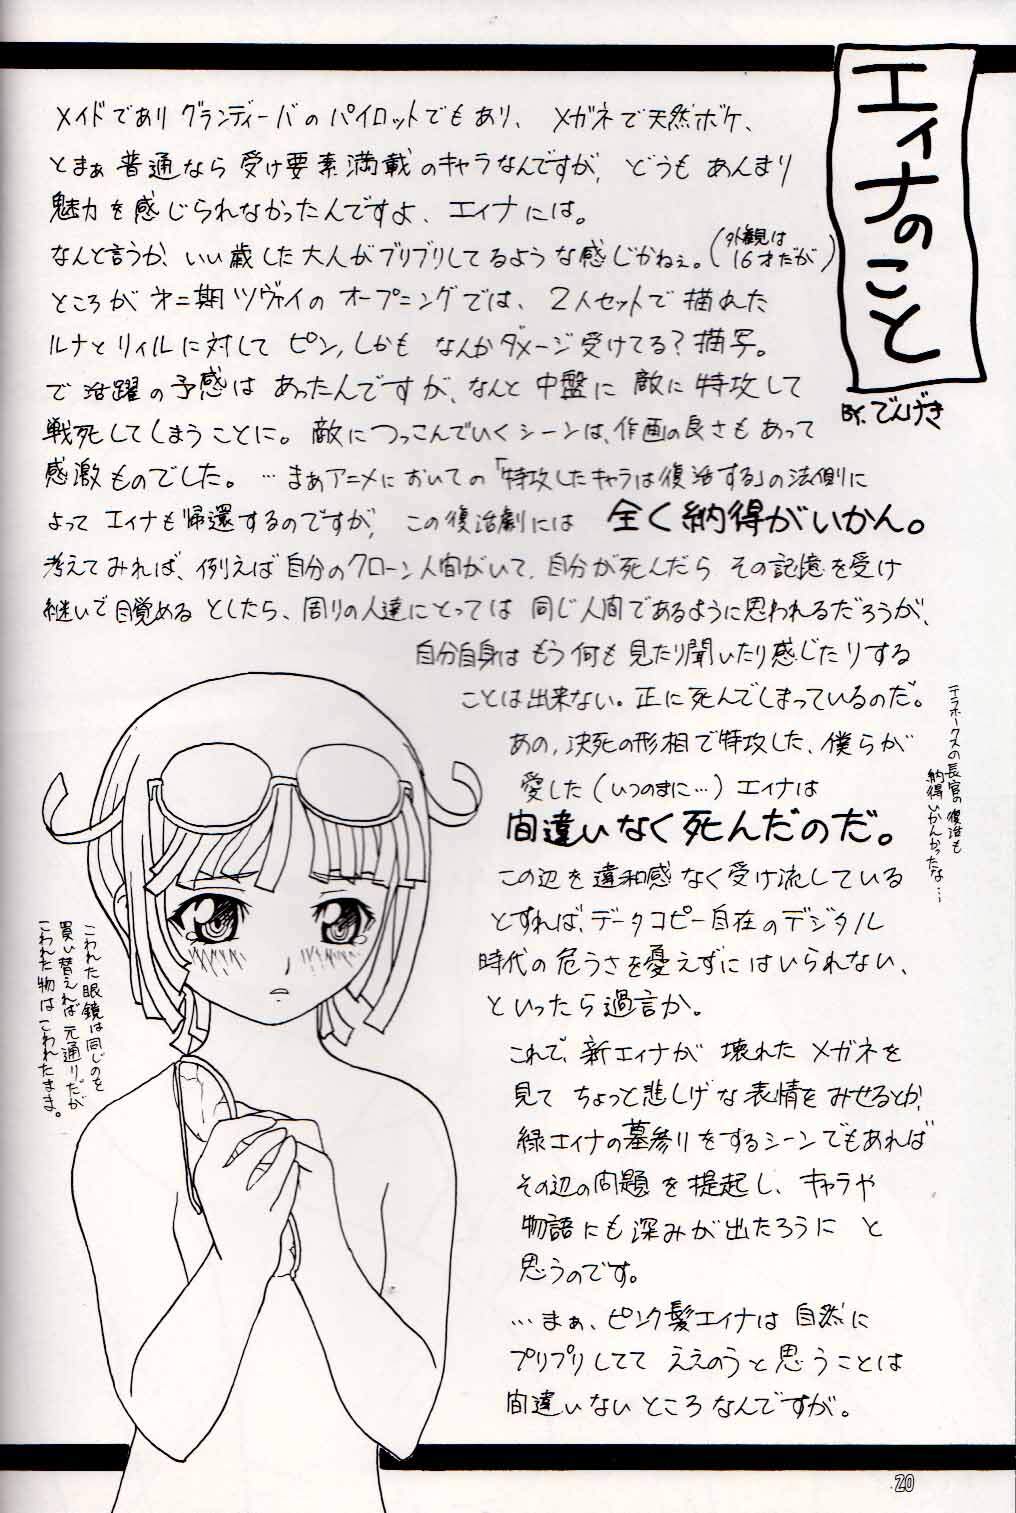 エィナのこと
BY.でんげき
メイドであり グランディーバのパイロットでもあり、メガネで天然ボケ、
とまぁ普通なら受け要素満載のキャラなんですが、どうもあんまり
魅力を感じられなかったんですよ、エィナには。
なんと言うか、いい歳した大人がブリブリしてるような感じかねぇ。(外観は16才だが)
ところが 第二期ツヴァイのオープニングでは、2人セットで描れた
ルナとリィルに対して ピン,しかも なんかダメージ受けてる?描写。
で活躍の予感は あったんですが、なんと中盤に 敵に特攻して
戦死してしまうことに。敵につっこんでいくシーンは、作画の良さもあって
感激ものでした。…まぁアニメにおいての「特攻したキャラは復活する」の法則に
よって エィナも帰還するのですが、この復活劇には 全く納得がいかん。
考えてみれば、例えば自分のクローン人間がいて、自分が死んだら その記憶を受け
継いで目覚める としたら、周りの人達にとっては 同じ人間であるように思われるだろうが、
自分自身は もう何も見たり聞いたり感じたりする
ことは出来ない。正に死んでしまっているのだ。
あの,決死の形相で特攻した、僕らが
愛した(いつのまに…)エィナは
間違いなく死んだのだ。
この辺を違和感なく受け流している
とすれば、データコピー自在のデジタル
時代の危うさを憂えずにはいられない、
といったら過言か。
これで、新エィナが 壊れたメガネを
見て ちょっと悲しげな表情をみせるとか、
緑エィナの墓参りをするシーンでもあれば
その辺の問題を提起し、キャラや
物語にも深みが出たろうにと
思うのです。
…まぁ、ピンク髪エィナは 自然に
プリプリしてて ええのうと思うことは
間違いないところなんですが。
テラホークスの長官の復活も
納得いかんかったな…
こわれた眼鏡は同じのを
買い替えれば元通りだが
こわれた物はこわれたまま。
20